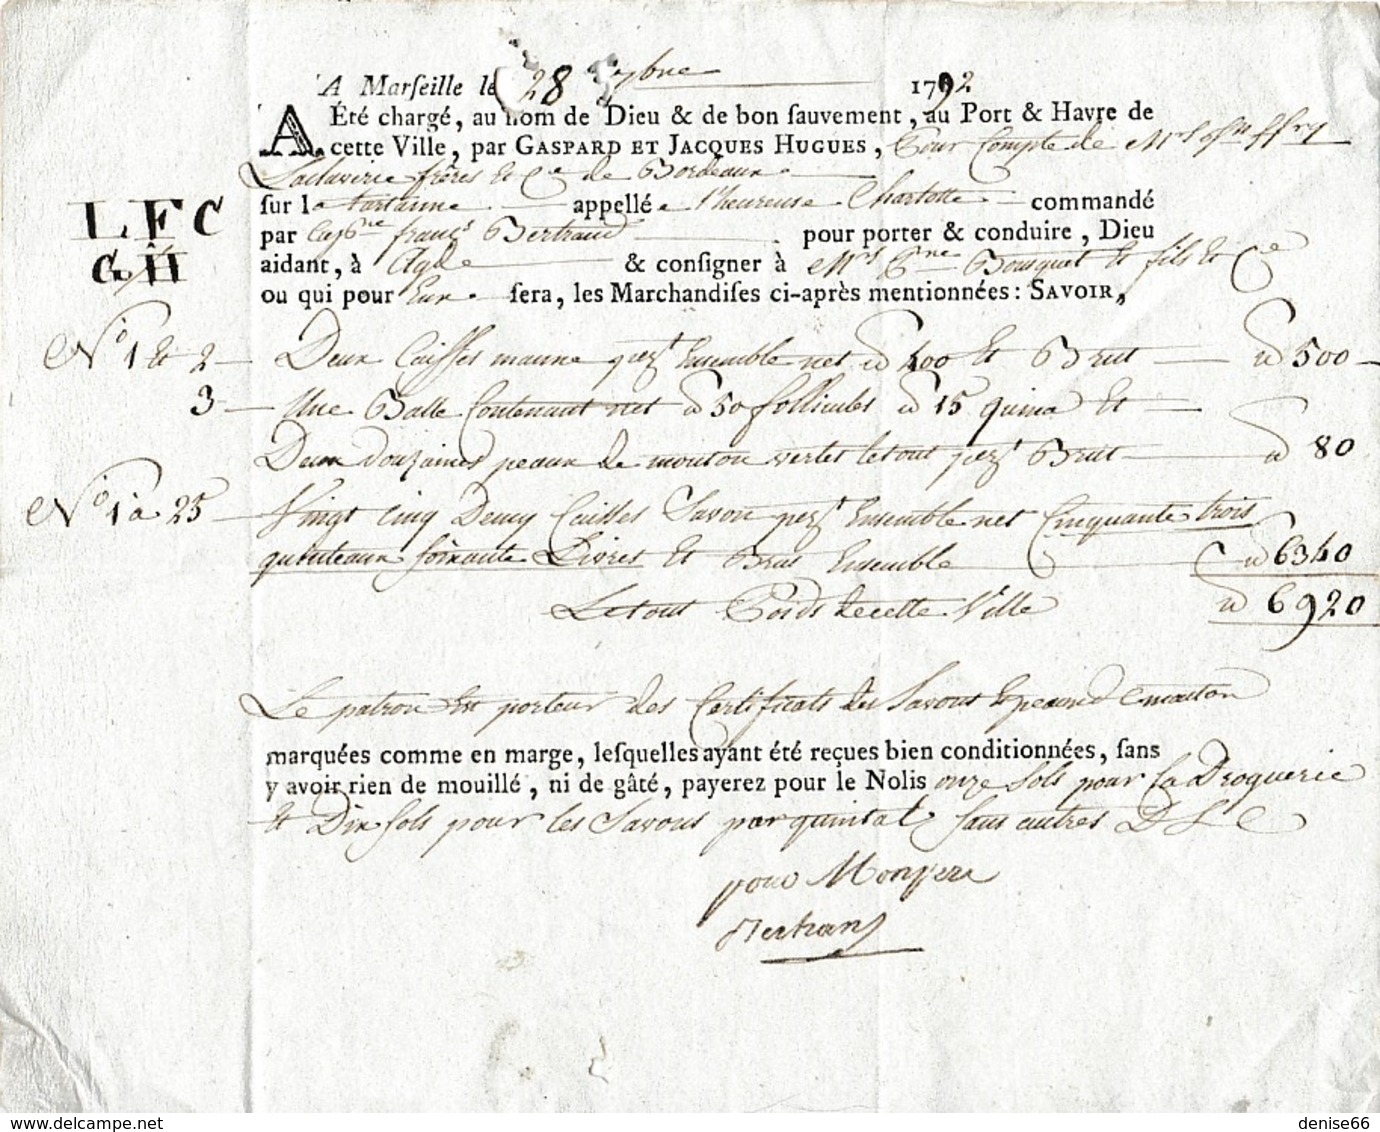 A Marſeille le 28 7bre 1792
A Été chargé, au nom de Dieu & de bon ſauvement, au Port & Havre de
cette Ville, par GASPARD ET JACQUES HUGUES, Pour Compte de Mrs
Laclaverie frères et Cie de Bordeaux
L F C
ſur la tartanne appellée l'heureuse Charlotte commandé
par Capne franç.s Bertrand pour porter & conduire, Dieu
G H
aidant, à Agde & conſigner à Mrs Bousquet et fils et Cie
ou qui pour Eux ſera, les Marchandiſes ci-après mentionnées: SAVOIR,
No 1 et 2 Deux Caisses manne pezt Ensemble net 400 et Brut 500
3 Une Balle Contenant net 50 follicules 15 quina et
Deux douzaines peaux de mouton vertes le tout pezt Brut 80
No 1 à 25 Vingt cinq Demy Caisses Savon pezt Ensemble net Cinquante trois
quintaux soixante Livres et Brut Ensemble 6340
Le tout Poids de cette Ville 6920
Le patron Est porteur des Certificats des Savons et peaux de mouton
marquées comme en marge, leſquelles ayant été reçues bien conditionnées, ſans
y avoir rien de mouillé, ni de gâté, payerez pour le Nolis onze Sols pour La Droguerie
et Dix sols pour les Savons par quintal sans autres
pour Mon pere
Bertrand
denise66